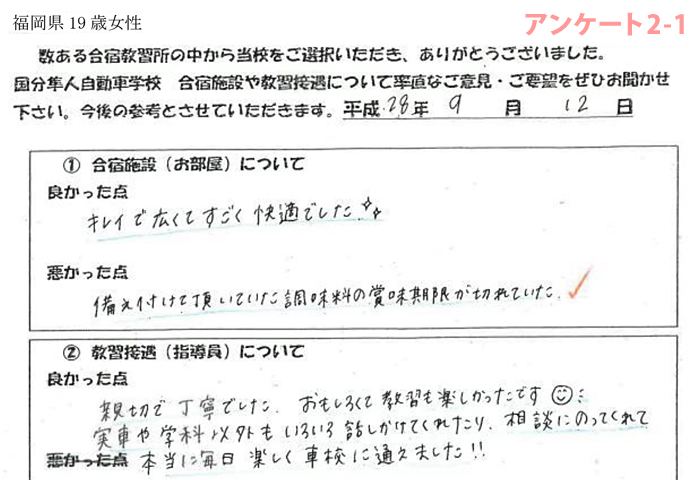 福岡県 19 歳女性
アンケート2-1
数ある合宿教習所の中から当校をご選択いただき、ありがとうございました。
国分隼人自動車学校 合宿施設や教習接遇について率直なご意見・ご要望をぜひお聞かせ
下さい。今後の参考とさせていただきます。平成 28 年 9 月 12 日
① 合宿施設（お部屋）について
良かった点
キレイで広くてすごく快適でした
悪かった点
備え付けて頂いていた調味料の賞味期限が切れていた。
② 教習接遇（指導員）について
良かった点
親切で丁寧でした。おもしろくて教習も楽しかったです
実車や学科以外もいろいろ話しかけてくれたり、相談にのってくれて
悪かった点 本当に毎日楽しく車校に通えました!!